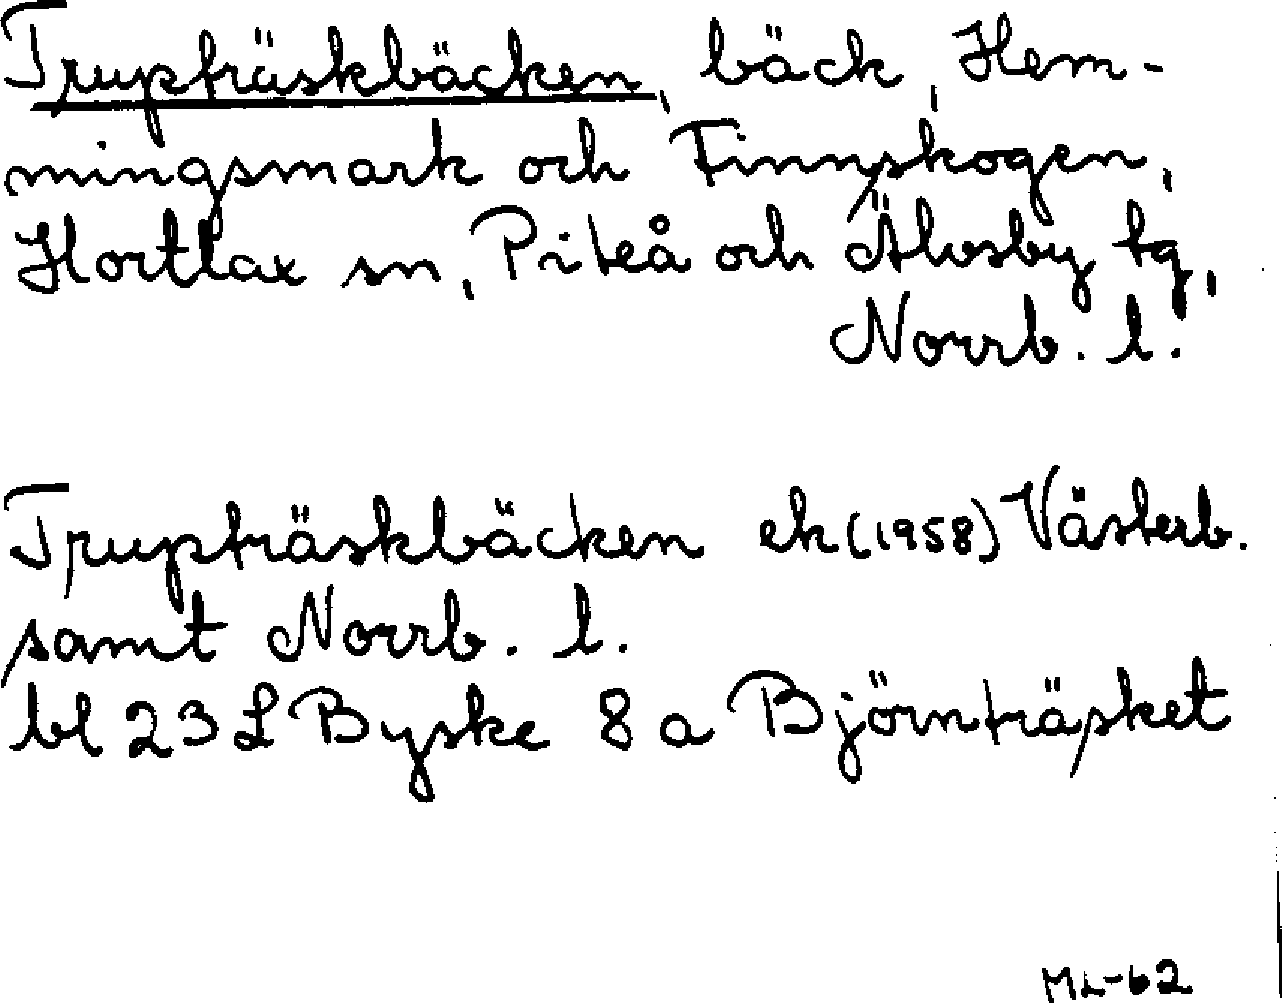 Trupträskbäcken, bäck, Hem-
mingsmark och Finnskogen,
Hortlax sn, Piteå och Älvsby tg,
Norrb. l.
Trupträskbäcken ek (1958) Västerb.
samt Norrb. l.
bl 23 L Byske 8 a Björnträsket
ML-62